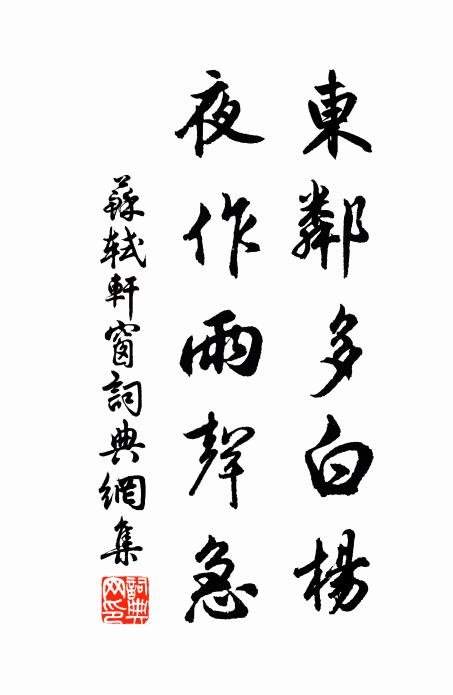 東鄰多白楊
夜作雨聲急
蘇軾軒窗詞典網集
詞典網印